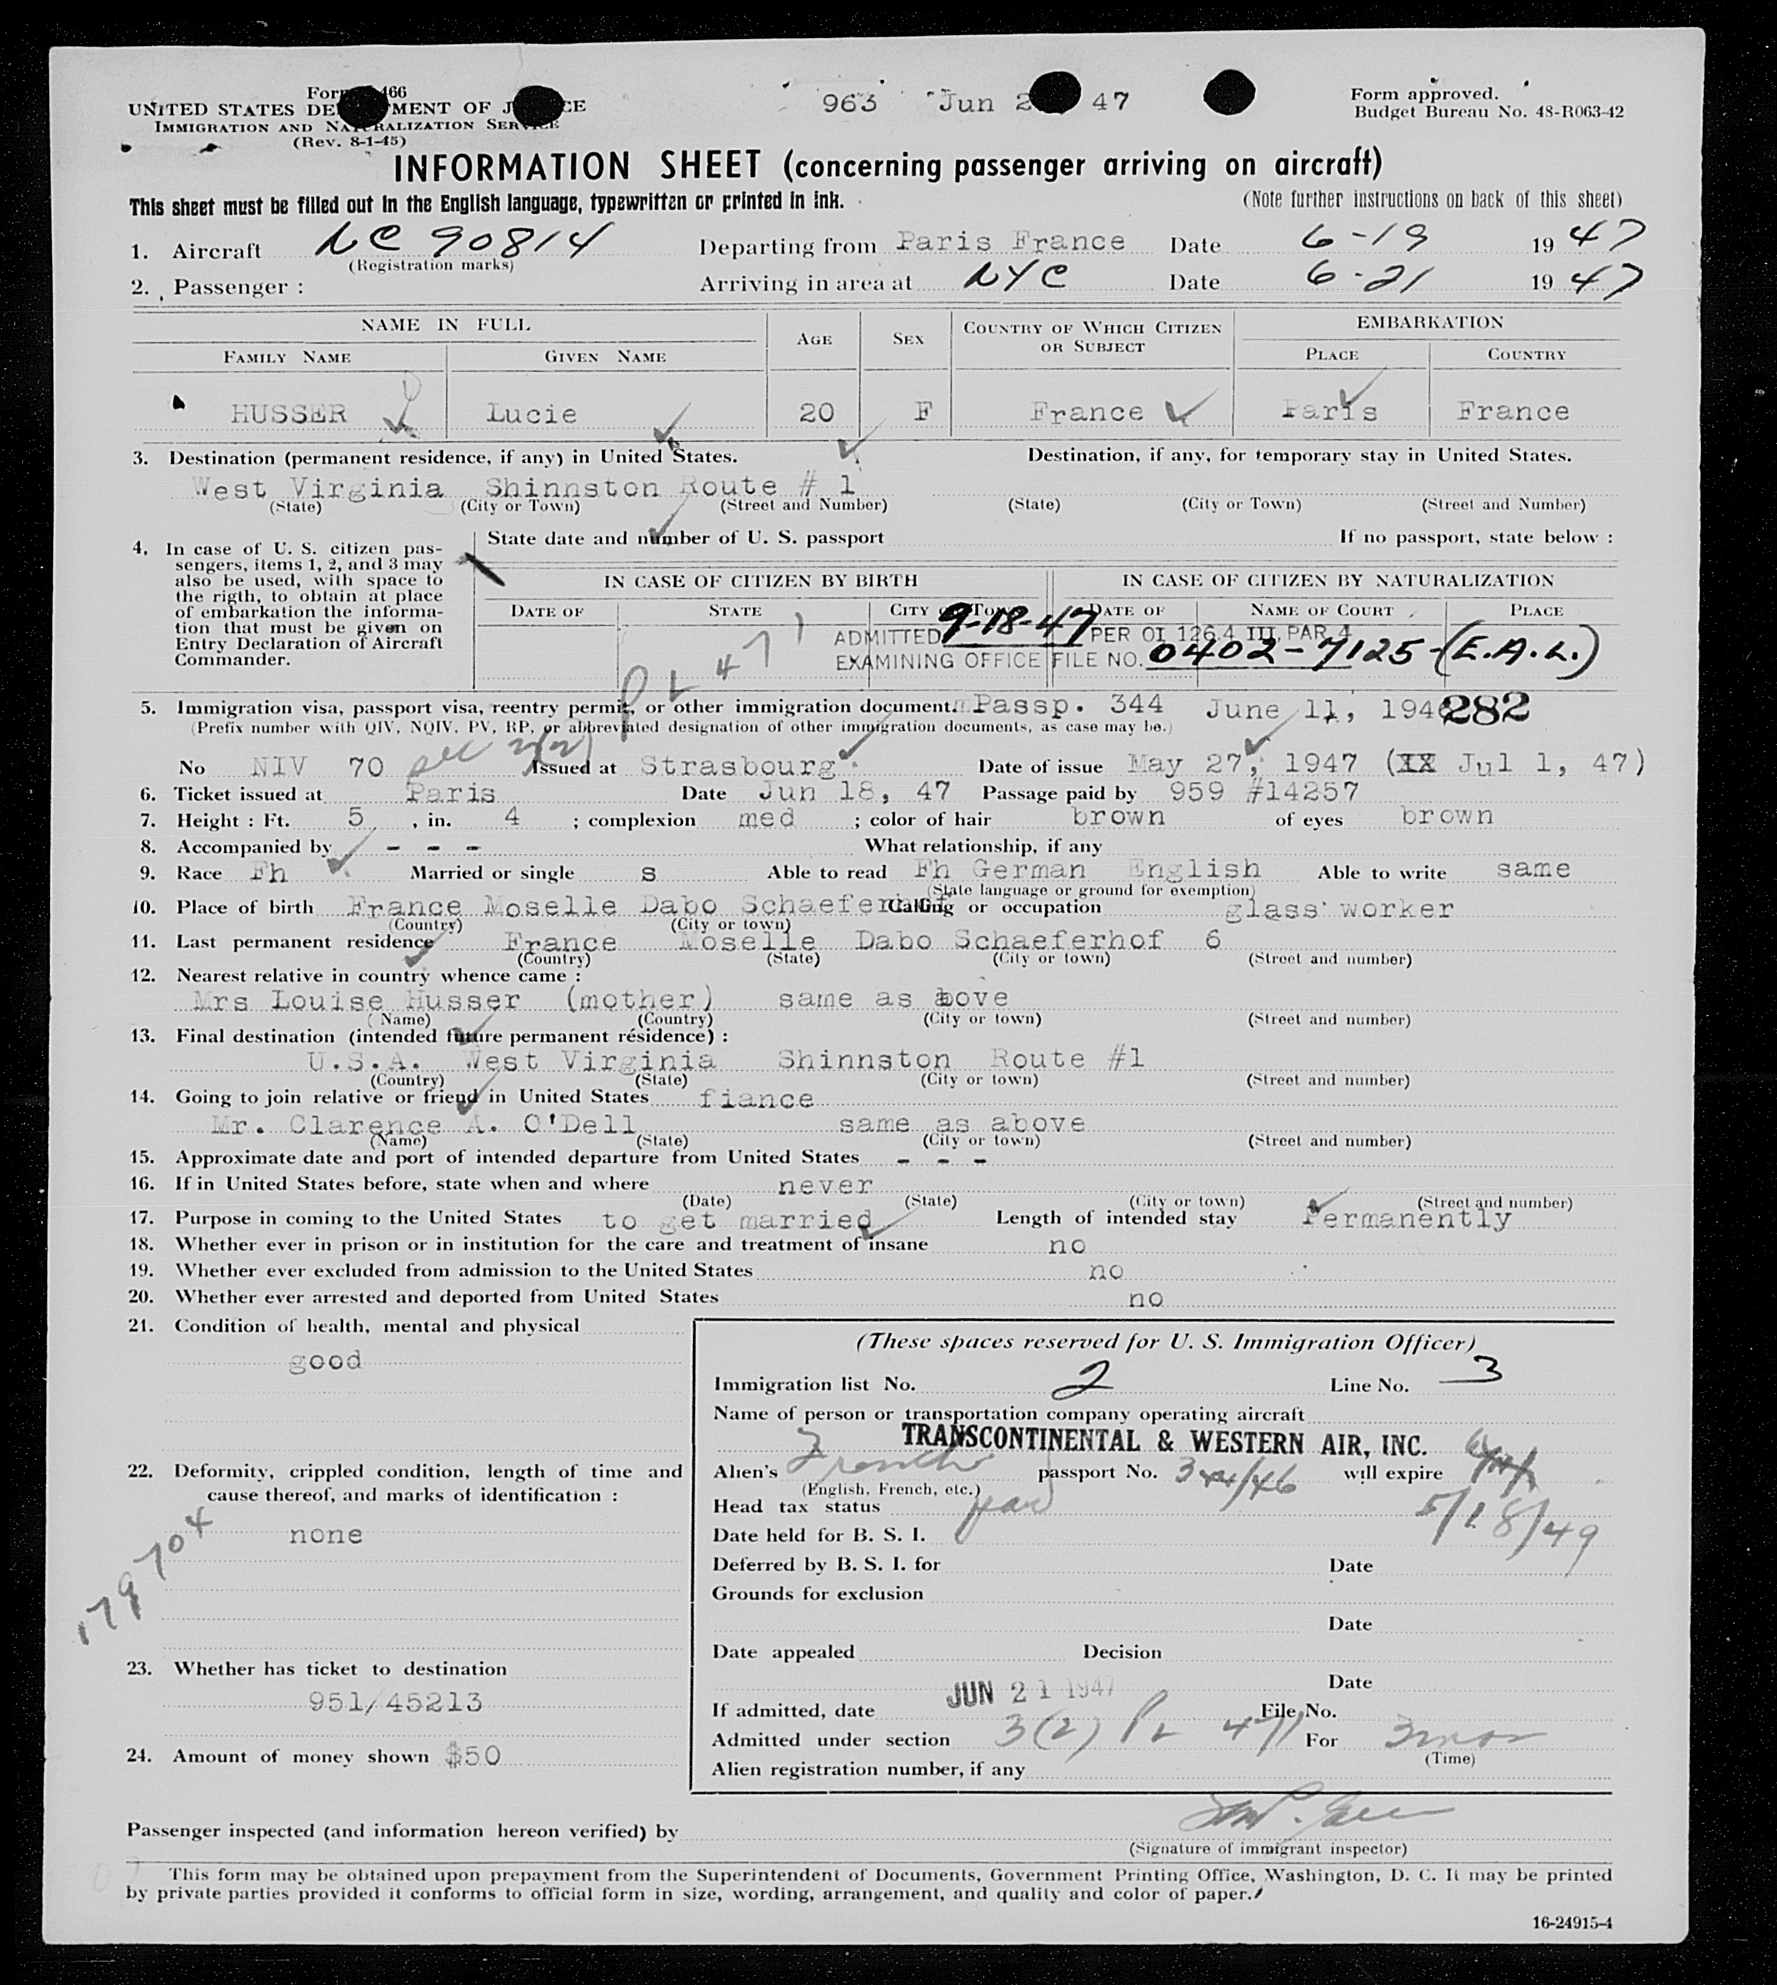 963 Jun 47
Form approved.
Budget Bureau No. 43-R063-42
UNITED STATES
IMMIGRATION AND NATURALIZATION SERVICE
(Rev. 8-1-45)
INFORMATION SHEET (concerning passenger arriving on aircraft)
This sheet must be filled out in the English language, typewritten or printed in ink. (Note further instructions on back of this sheet)
1. Aircraft NC 90814 Departing from Paris France Date 6-19 19 47
(Registration marks)
2. Passenger : Arriving in area at NYC Date 6-21 19 47
NAME IN FULL AGE SEX COUNTRY OF WHICH CITIZEN OR SUBJECT EMBARKATION
FAMILY NAME GIVEN NAME PLACE COUNTRY
HUSSER Lucie 20 F France Paris France
3. Destination (permanent residence, if any) in United States. Destination, if any, for temporary stay in United States.
West Virginia Shinnston Route # 1
(State) (City or Town) (Street and Number) (State) (City or Town) (Street and Number)
4. In case of U. S. citizen pas-
sengers, items 1, 2, and 3 may
also be used, with space to
the rigth, to obtain at place
of embarkation the informa-
tion that must be given on
Entry Declaration of Aircraft
Commander.
State date and number of U. S. passport If no passport, state below :
IN CASE OF CITIZEN BY BIRTH IN CASE OF CITIZEN BY NATURALIZATION
DATE OF STATE CITY OR TOWN DATE OF NAME OF COURT PLACE
ADMITTED 9-18-47 PER OI 126.4 III, PAR 4
EXAMINING OFFICE FILE NO. 0402-7125-(E.A.L.)
PL 471
5. Immigration visa, passport visa, reentry permit, or other immigration document. Passp. 344 June 11, 1946 282
(Prefix number with QIV, NQIV, PV, RP, or abbreviated designation of other immigration documents, as case may be.)
No NIV 70 Issued at Strasbourg Date of issue May 27, 1947 (XX Jul 1, 47)
6. Ticket issued at Paris Date Jun 18, 47 Passage paid by 959 #14257
7. Height : Ft. 5 , in. 4 ; complexion med ; color of hair brown of eyes brown
8. Accompanied by - - - What relationship, if any
9. Race Fh Married or single s Able to read Fh German English Able to write same
(State language or ground for exemption)
10. Place of birth France Moselle Dabo Schaeferhof Calling or occupation glass worker
(Country) (City or town)
11. Last permanent residence France Moselle Dabo Schaeferhof 6
(Country) (State) (City or town) (Street and number)
12. Nearest relative in country whence came :
Mrs Louise Husser (mother) same as above
(Name) (Country) (City or town) (Street and number)
13. Final destination (intended future permanent résidence) :
U.S.A. West Virginia Shinnston Route #1
(Country) (State) (City or town) (Street and number)
14. Going to join relative or friend in United States fiance
Mr. Clarence A. O'Dell same as above
(Name) (State) (City or town) (Street and number)
15. Approximate date and port of intended departure from United States - - -
16. If in United States before, state when and where never
(Date) (State) (City or town) (Street and number)
17. Purpose in coming to the United States to get married Length of intended stay Permanently
18. Whether ever in prison or in institution for the care and treatment of insane no
19. Whether ever excluded from admission to the United States no
20. Whether ever arrested and deported from United States no
21. Condition of health, mental and physical
good
22. Deformity, crippled condition, length of time and
cause thereof, and marks of identification :
none
179704
23. Whether has ticket to destination
951/45213
24. Amount of money shown $50
(These spaces reserved for U. S. Immigration Officer)
Immigration list No. 2 Line No. 3
Name of person or transportation company operating aircraft
TRANSCONTINENTAL & WESTERN AIR, INC.
Alien's French passport No. 344/46 will expire
(English, French, etc.)
5/18/49
Head tax status
Date held for B. S. I.
Deferred by B. S. I. for Date
Grounds for exclusion
Date
Date appealed Decision
Date
If admitted, date JUN 21 1947 File No.
Admitted under section 3(2) PL 471 For 3 mos
(Time)
Alien registration number, if any
Passenger inspected (and information hereon verified) by
(Signature of immigrant inspector)
This form may be obtained upon prepayment from the Superintendent of Documents, Government Printing Office, Washington, D. C. It may be printed
by private parties provided it conforms to official form in size, wording, arrangement, and quality and color of paper.
16-24915-4